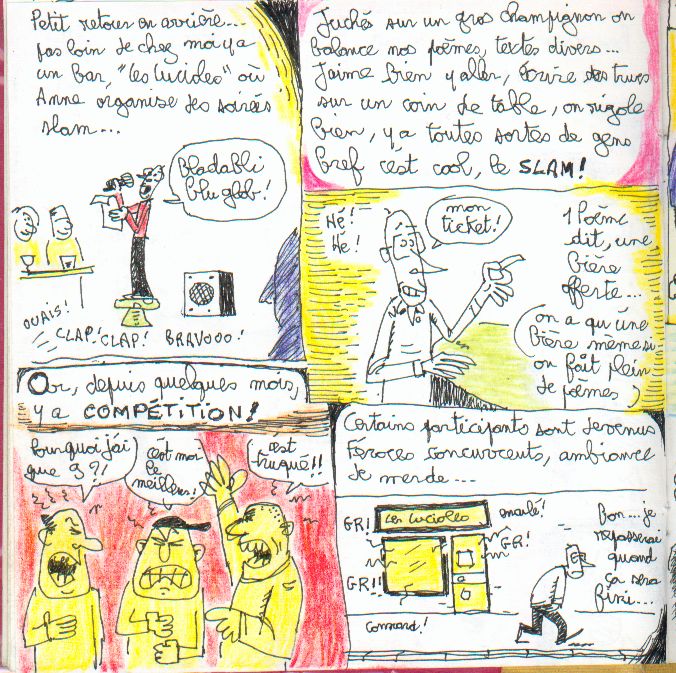 Petit retour en arrière...
pas loin de chez moi y a
un bar, "les lucioles" où
Anne organise des soirées
slam...
Bladabli
blu glob!
OUAIS!
CLAP! CLAP! BRAVOOO!
Juchés sur un gros champignon on
balance nos poèmes, textes divers...
J'aime bien y aller, écrire des trucs
sur un coin de table, on rigole
bien, y a toutes sortes de gens
bref c'est cool, le SLAM!
HÉ!
HE!
mon
ticket!
1 Poème
dit, une
bière
offerte...
(on a qu'une
bière même si
on fait plein
de poèmes)
Or, depuis quelques mois,
y a COMPÉTITION!
Pourquoi j'ai
que 9?!
c'est moi
le
meilleur!
c'est
truqué!!
Certains participants sont devenus
féroces concurrents, ambiance
de merde...
GR!
Les Lucioles
enculé!
GR!
GR!!
connard!
Bon... je
repasserai
quand
ça sera
fini...